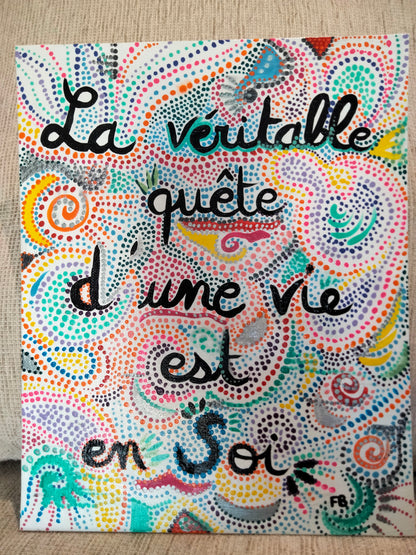 La véritable
quête
d'une vie
est
en Soi
FB